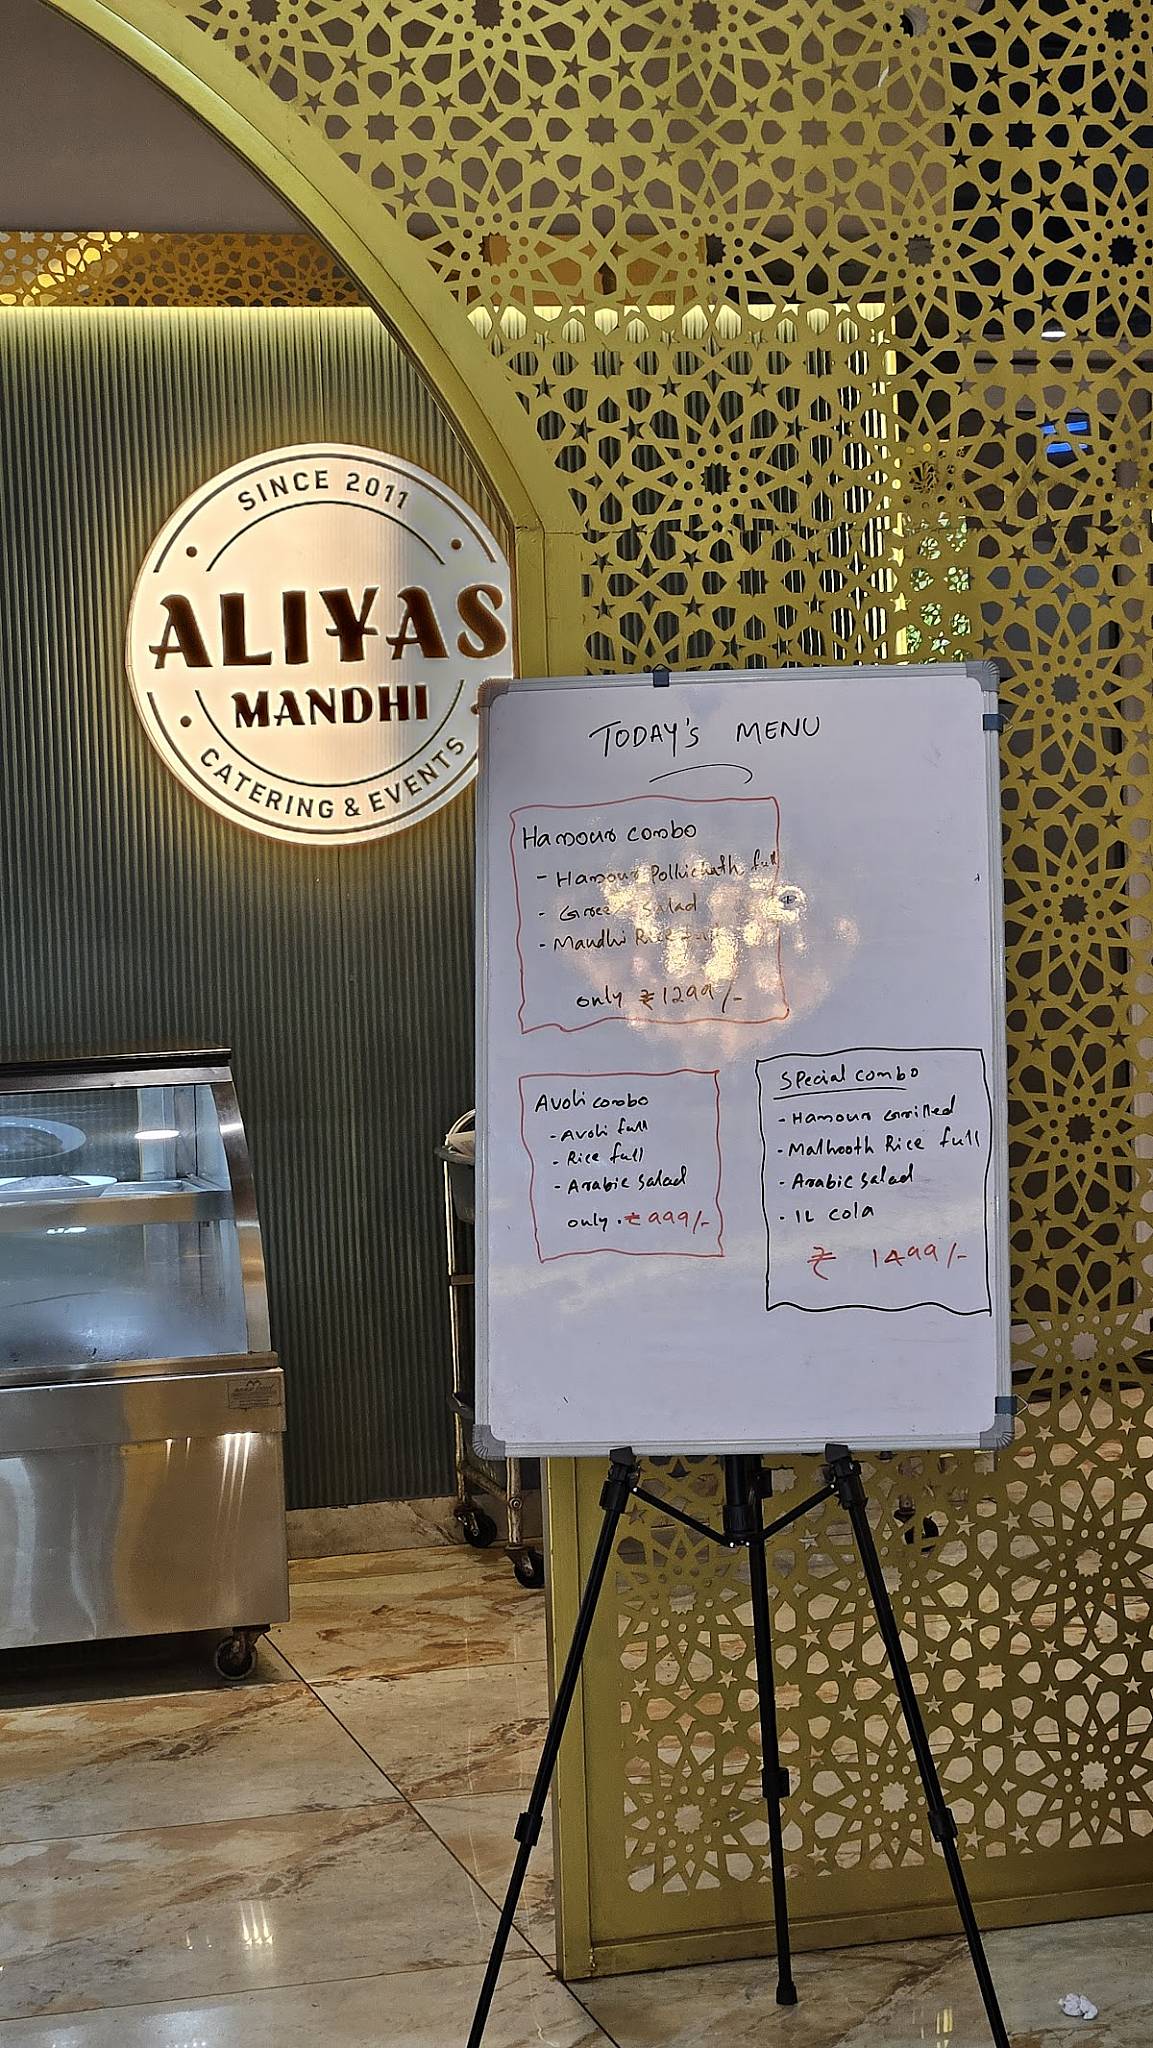 SINCE 2011
ALIYAS
MANDHI
CATERING & EVENTS
TODAY'S MENU
Hamour combo
- Hamour Pollichath full
- Green Salad
- Mandhi Rice full
only ₹1299/-
Avoli combo
- Avoli full
- Rice full
- Arabic Salad
only. ₹999/-
Special combo
- Hamour Grilled
- Malhooth Rice full
- Arabic Salad
- 1L cola
₹ 1499/-